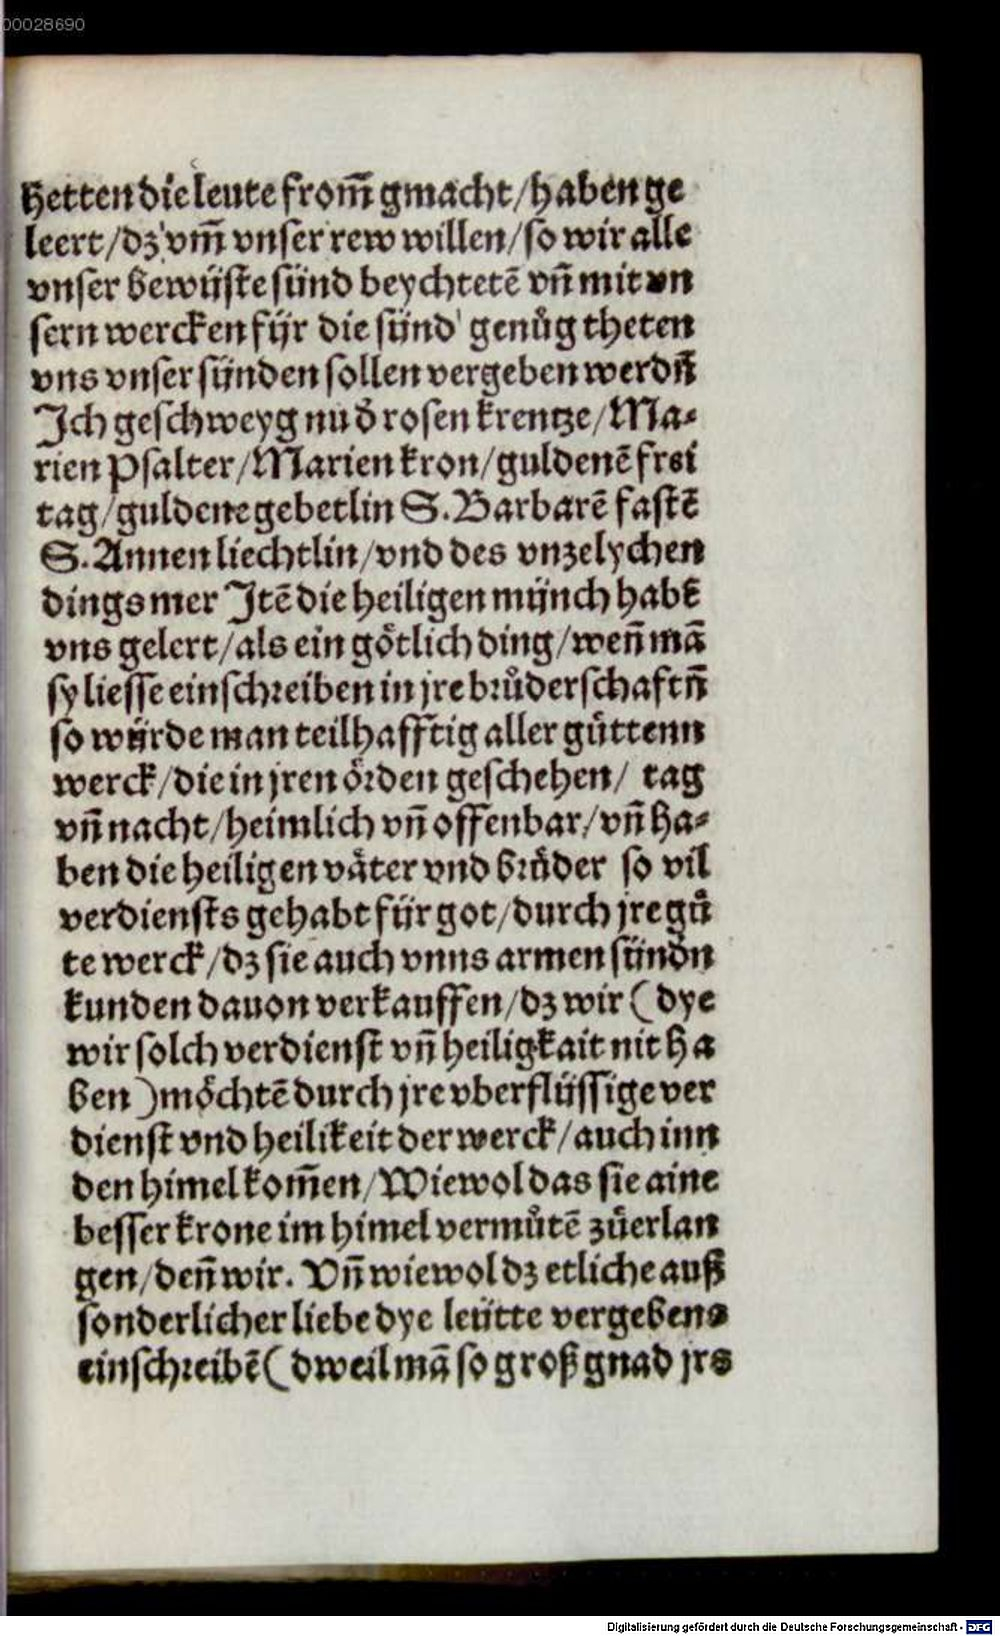 00028690
hetten die leute from̄ gmacht/haben ge
leert/dz vm̄ vnser rew willen/so wir alle
vnser bewüste sünd beychtetē vn̄ mit vn
sern wercken für die sünd genůg theten
vns vnser sünden sollen vergeben werdn̄
Ich geschweyg nu d̄ rosenkrentze/Ma⸗
rien Psalter/Marien kron/guldenē frei
tag/guldene gebetlin S. Barbarē fastē
S. Annen liechtlin/vnd des vnzelychen
dings mer Itē die heiligen münch habē
vns gelert/als ein götlich ding/wen̄ mā
sy liesse einschreiben in jre brůderschaftn̄
so würde man teilhafftig aller güttenn
werck/die in jren örden geschehen/ tag
vn̄ nacht/heimlich vn̄ offenbar/vn̄ ha⸗
ben die heiligen väter vnd brüder so vil
verdiensts gehabt für got/durch jre gů
te werck/dz sie auch vnns armen sündn̄
kunden dauon verkauffen/dz wir (dye
wir solch verdienst vn̄ heiligkait nit ha
ben) möchtē durch jre vberflüssige ver
dienst vnd heilikeit der werck/auch inn
den himel kom̄en/Wiewol das sie aine
besser krone im himel vermůtē zůerlan
gen/den̄ wir. Vn̄ wiewol dz etliche auß
sonderlicher liebe dye leütte vergebens
einschreibē (dweil mā so groß gnad jrs
Digitalisierung gefördert durch die Deutsche Forschungsgemeinschaft - DFG